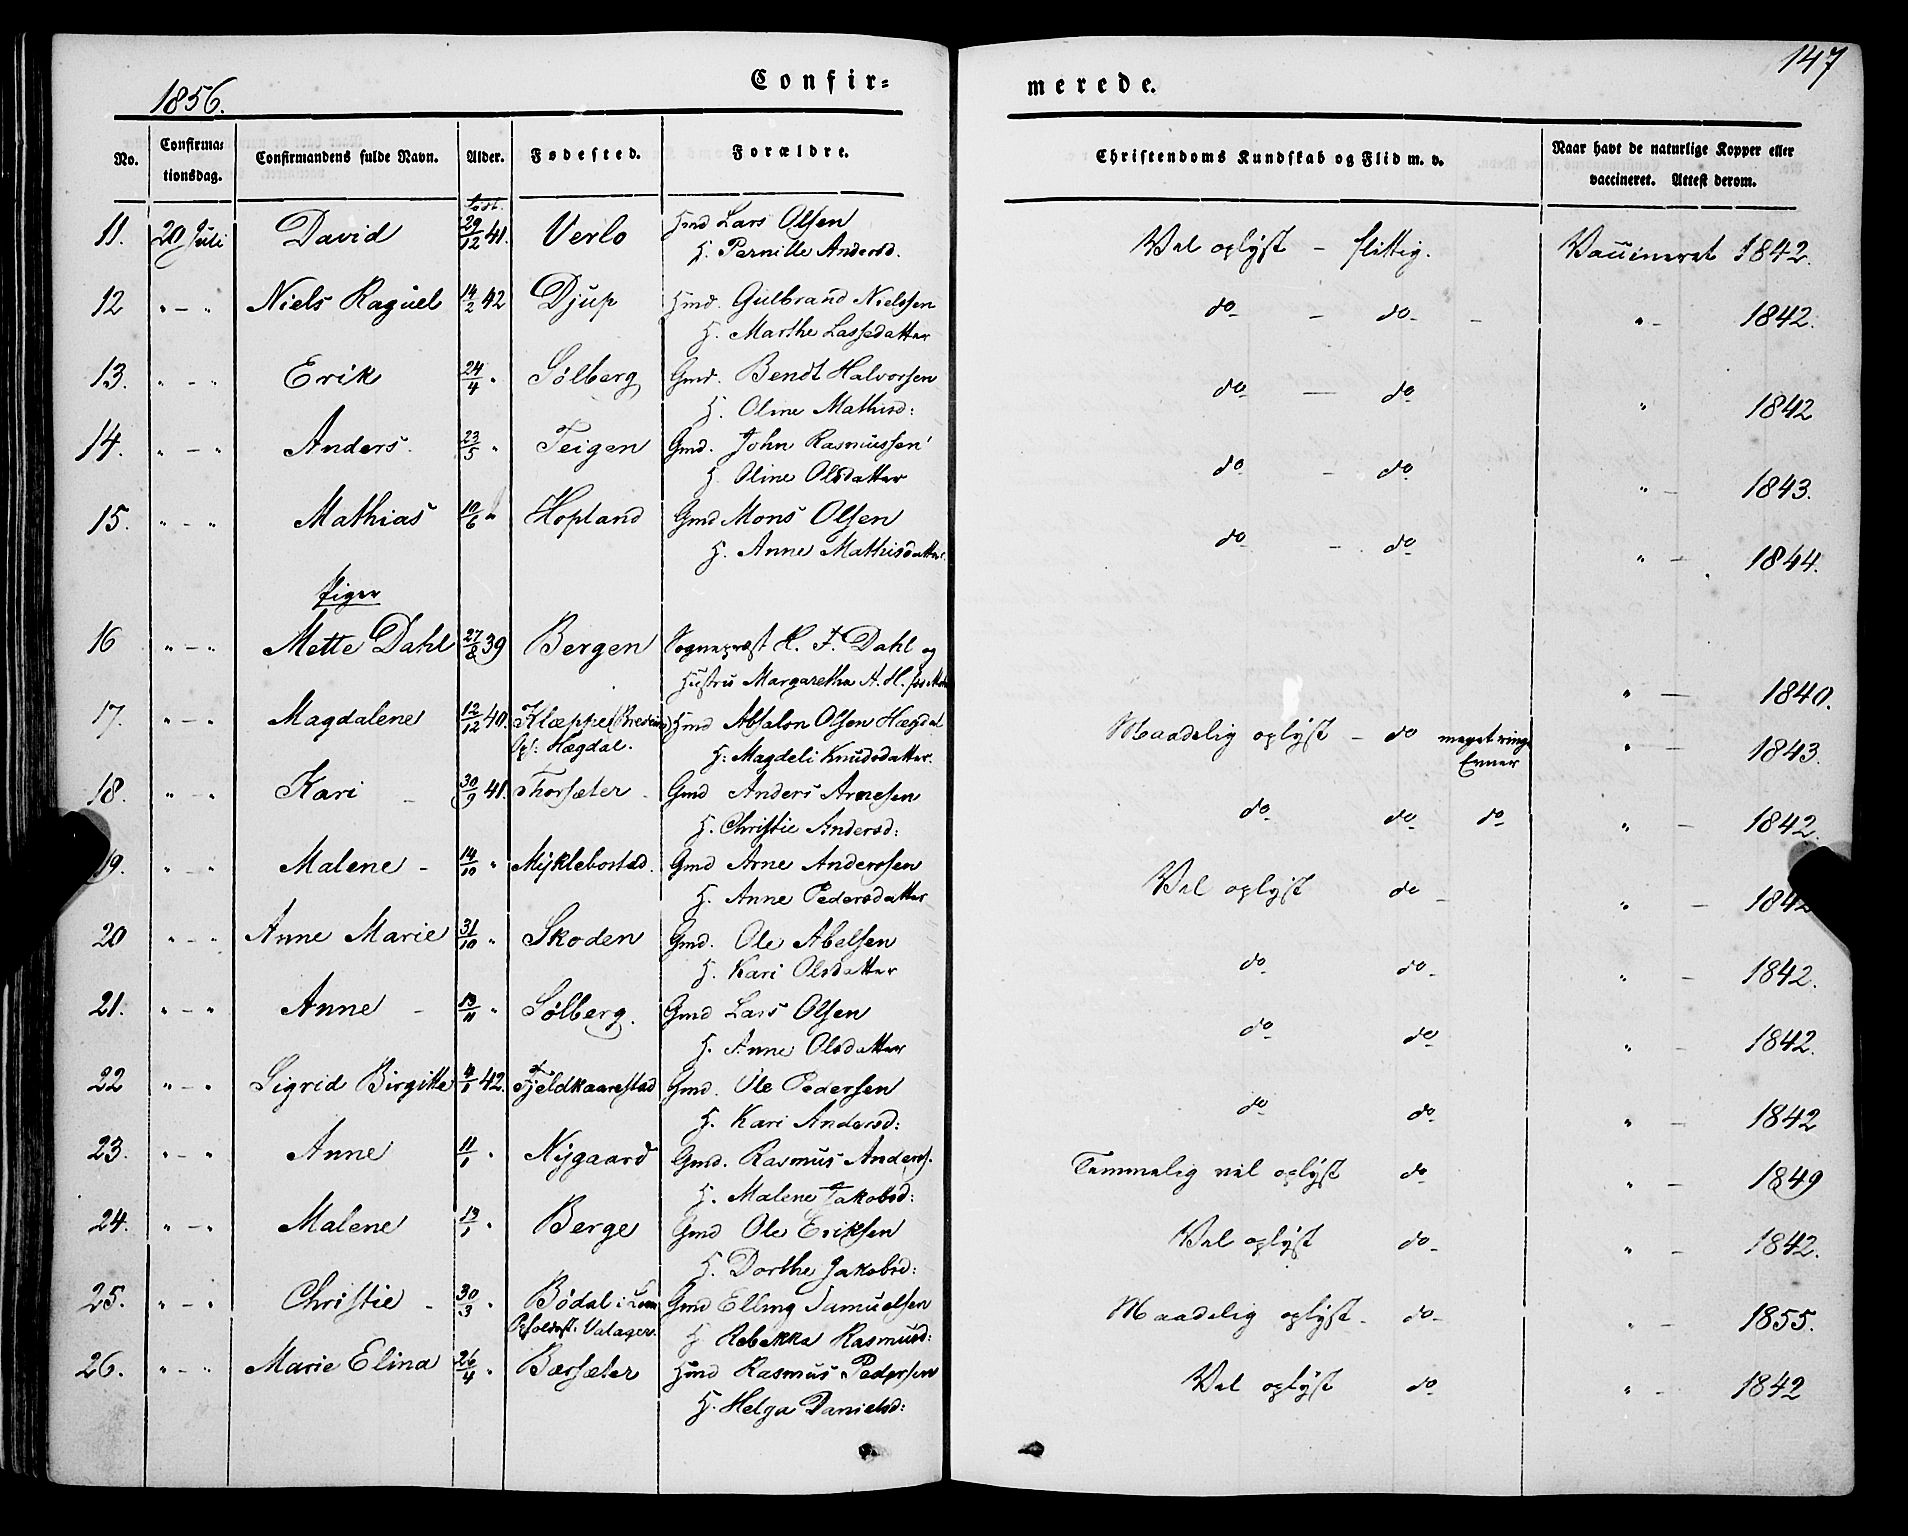 147
1856.
Confir=
merede.
No. Confirma=tionsdag. Confirmandens fulde Navn. Alder. Fødested. Forældre. Christendoms Kundskab og Flid m. v. Naar havt de naturlige Kopper eller vaccineret. Attest derom.
11. 20 Juli David 29/12 41. Verlo Hmd Lars Olsen Vel oplyst – flittig. Vaccineret 1842.
H. Pernille Andersd.
12 " – " Niels Raguel 14/2 42 Djup Hmd. Gulbrand Nielssen do – do – " – 1842.
H. Marthe Lassedatter
13. " – " Erik 24/4 " Sølberg Gmd. Bendt Halvorsen do – do " 1842
H. Oline Mathisd:
14. " – " Anders. 23/5 " Teigen Gmd. John Rasmussen do – do " – 1843.
H. Oline Olsdatter
15. " – " Mathias 10/6 " Hopland Gmd Mons Olsen do – do " – 1844.
H. Anne Mathisdatter
Piger
16 " – " Mette Dahl 27/8 39 Bergen Sognepræst H. F. Dahl og " – 1840.
Hustru Margaretha A. H.
17. " – " Magdalene 12/12 40. Klæppe Hmd Absalon Olsen Hægdal Maadelig oplyst – do meget ringe " – 1843.
Opf: Hægdal. H: Magdeli Knudsdatter. Evner
18. " – " Kari – 30/9 41. Thorsæter – Gmd Anders Arnesen do do do " – 1842.
H. Christie Andersd:
19. " – " Malene – 14/10 " Myklebostad. Gmd Arne Anderssen Vel oplyst do – " – 1842
H. Anne Pedersdatter
20 " – " Anne Marie 31/10 " Skoden Gmd. Ole Abelsen do do – " – 1842.
H. Kari Olsdatter
21. " – " Anne – 13/11 " Sølberg. Gmd Lars Olsen do do " – 1842.
H. Anne Olsdatter
22 " – " Sigrid Birgitte 4/1 42. Fjeldkaarstad Gmd. Ole Pedersen do do " – 1842
H. Kari Andersd:
23. " – " Anne 11/1 " Nygaard Gmd. Rasmus Anders. Temmelig vel oplyst do " – 1849
H. Malene Jakobsd:
24. " – " Malene 13/1 " Berge Gmd Ole Eriksen Vel oplyst do – " – 1842.
H. Dorthe Jakobsd:
25. " – " Christie – 30/3 " Bødal i Gmd Elling Samuelsen Maadelig oplyst – do – " – 1855.
Opholdsst: Valager. H Rebekka Rasmusd:
26. " – " Marie Elina 26/4 " Bærsæter Hmd Rasmus Pedersen Vel oplyst do " – 1842
H. Helga Danielsd: